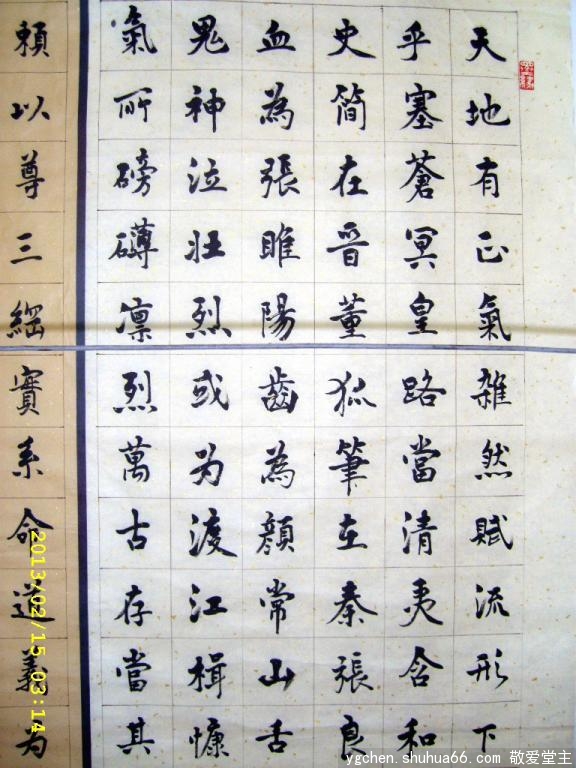 天地有正氣雜然賦流形下
乎塞蒼冥皇路當清夷含和
史簡在晉董狐筆在秦張良
血為張睢陽齒為顏常山舌
鬼神泣壯烈或为渡江楫慷
氣所磅礴凛烈萬古存當其
賴以尊三綱實系命道義为
2013/02/15 03:14
ygchen.shuhua66.com 敬爱堂主